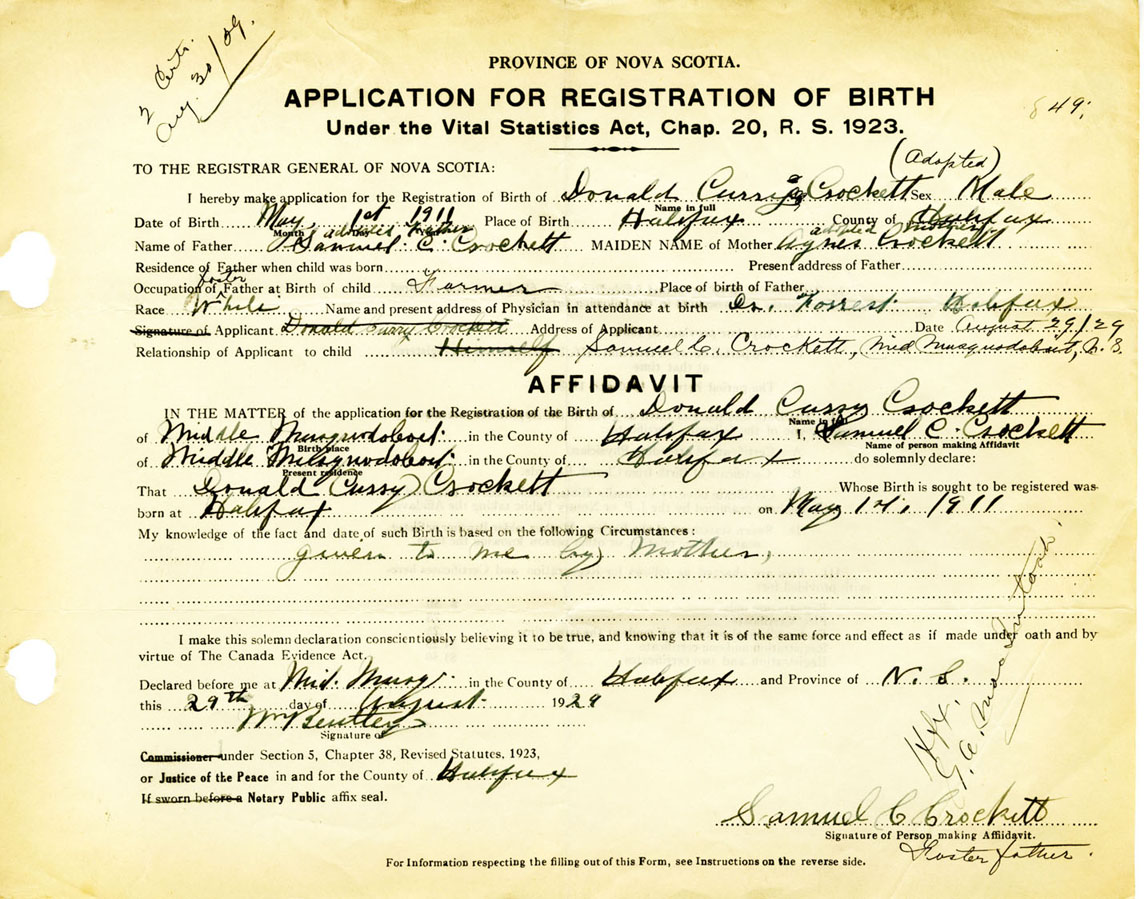 2 Certs.
Aug. 30/29.
PROVINCE OF NOVA SCOTIA.
APPLICATION FOR REGISTRATION OF BIRTH
849.
Under the Vital Statistics Act, Chap. 20, R. S. 1923.
TO THE REGISTRAR GENERAL OF NOVA SCOTIA:
(Adopted)
I hereby make application for the Registration of Birth of Donald Curry Crockett Sex Male
Name in full
Date of Birth May 1st 1911 Place of Birth Halifax County of Halifax
Month Day
adopted father adopted mother
Name of Father Samuel C. Crockett MAIDEN NAME of Mother Agnes Crockett
Residence of Father when child was born Present address of Father
foster
Occupation of Father at Birth of child Farmer Place of birth of Father
Race White Name and present address of Physician in attendance at birth Dr. Forrest Halifax
Signature of Applicant Donald Curry Crockett Address of Applicant Date August 29/29
Relationship of Applicant to child Himself Samuel C. Crockett, Mid Musquodoboit, N. S.
AFFIDAVIT
IN THE MATTER of the application for the Registration of the Birth of Donald Curry Crockett
Name in full
of Middle Musquodoboit in the County of Halifax I, Samuel C. Crockett
Birth place Name of person making Affidavit
of Middle Musquodoboit in the County of Halifax do solemnly declare:
Present residence
That Donald Curry Crockett Whose Birth is sought to be registered was
born at Halifax on May 1st, 1911
My knowledge of the fact and date of such Birth is based on the following Circumstances:
given to me by Mother,
I make this solemn declaration conscientiously believing it to be true, and knowing that it is of the same force and effect as if made under oath and by
virtue of The Canada Evidence Act.
Declared before me at Mid. Musq. in the County of Halifax and Province of N. S.
this 29th day of August 1929
Wm Bentley
Signature of
Commissioner under Section 5, Chapter 38, Revised Statutes, 1923,
or Justice of the Peace in and for the County of Halifax
If sworn before a Notary Public affix seal.
Samuel C Crockett
Signature of Person making Affidavit.
Foster father.
For Information respecting the filling out of this Form, see Instructions on the reverse side.